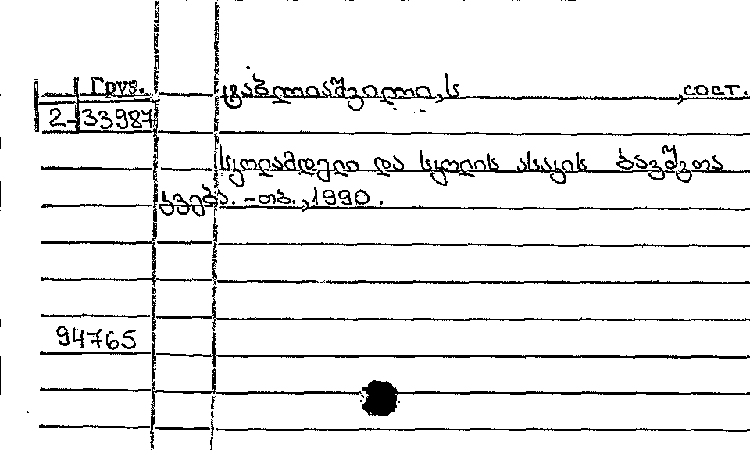 Груз. ტაბლიაშვილი, ს , сост.
2-33987
სკოლამდელი და სკოლის ასაკის ბავშვთა
კვება. - თბ., 1990.
94765